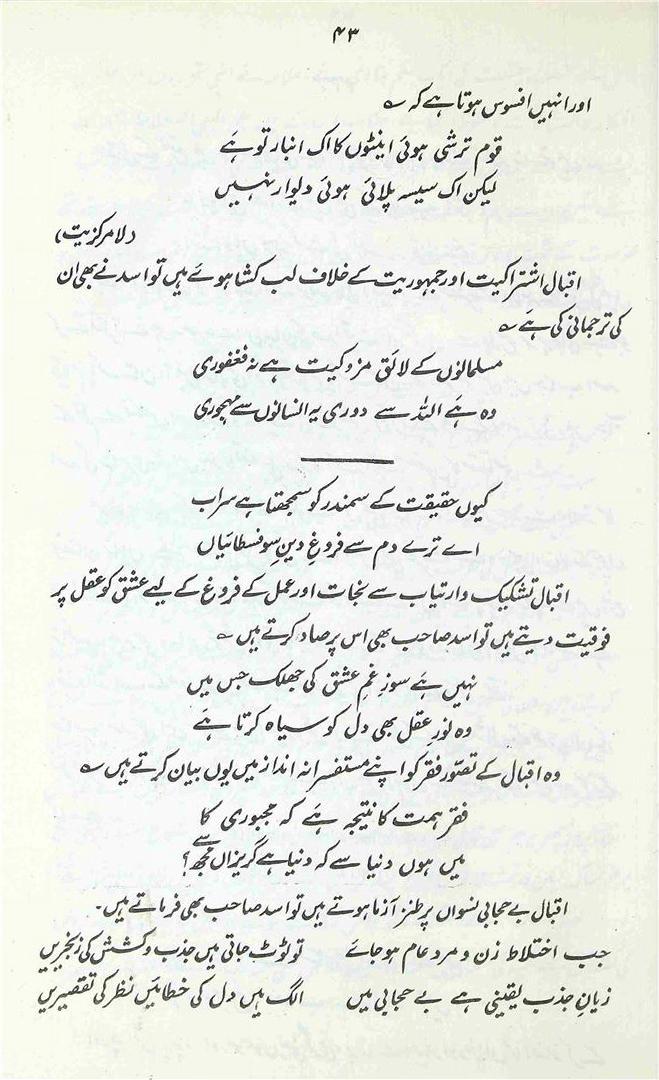 ۴۳
اور انہیں افسوس ہوتا ہے کہ ؎
قوم ترشی ہوئی اینٹوں کا اک انبار تو ہے
لیکن اک سیسہ پلائی ہوئی دیوار نہیں
(لامرکزیت)
اقبال اشتراکیت اور جمہوریت کے خلاف لب کشا ہوئے ہیں تو اسد نے بھی ان
کی ترجمانی کی ہے ؎
مسلمانوں کے لائق مزدکیت ہے نہ فغفوری
وہ ہے اللہ سے دوری یہ انسانوں سے مہجوری
کیوں حقیقت کے سمندر کو سمجھتا ہے سراب
اے ترے دم سے فروغِ دینِ سوفسطائیاں
اقبال تشکیک و ارتیاب سے نجات اور عمل کے فروغ کے لیے عشق کو عقل پر
فوقیت دیتے ہیں تو اسد صاحب بھی اس پر صاد کرتے ہیں ؎
نہیں ہے سوزِ غمِ عشق کی جھلک جس میں
وہ نورِ عقل بھی دل کو سیاہ کرتا ہے
وہ اقبال کے تصورِ فقر کو اپنے مستفسرانہ انداز میں یوں بیان کرتے ہیں ؎
فقر ہمت کا نتیجہ ہے کہ مجبوری کا
میں ہوں دنیا سے کہ دنیا ہے گریزاں مجھ سے؟
اقبال بے حجابی نسواں پر طنز آزما ہوتے ہیں تو اسد صاحب بھی فرماتے ہیں۔
جب اختلاط زن و مرد عام ہو جائے تو ٹوٹ جاتی ہیں جذب و کشش کی زنجیریں
زیانِ جذب یقینی ہے بے حجابی میں الگ ہیں دل کی خطائیں نظر کی تقصیریں